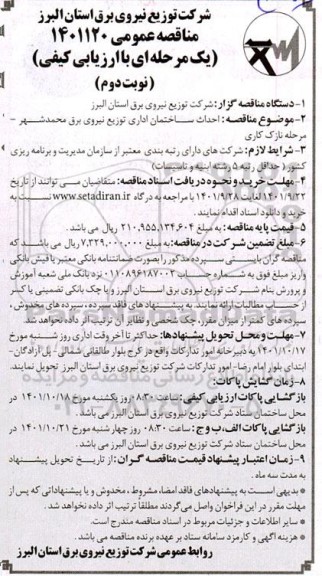 شرکت توزیع نیروی برق استان البرز
مناقصه عمومی ۱۴۰۱۱۲۰
(یک مرحله ای با ارزیابی کیفی)
(نوبت دوم)
۱-دستگاه مناقصه گزار: شرکت توزیع نیروی برق استان البرز
۲-موضوع مناقصه: احداث ساختمان اداری توزیع نیروی برق محمدشهر -
مرحله نازک کاری
۳- شرایط لازم: شرکت های دارای رتبه بندی معتبر از سازمان مدیریت و برنامه ریزی
کشور (حداقل رتبه ۵ رشته ابنیه و تاسیسات)
۴- مهلت خرید و نحوه دریافت اسناد مناقصه: متقاضیان می توانند از تاریخ
۱۴۰۱/۹/۲۲ لغایت ۱۴۰۱/۹/۲۸ با مراجعه به درگاه www.setadiran.ir نسبت به
خرید و دانلود اسناد اقدام نمایند.
۵- قیمت پایه مناقصه: به مبلغ ۲۱۰.۹۵۵.۱۳۴.۶۰۴ ریال می باشد.
۶- مبلغ تضمین شرکت در مناقصه: به مبلغ ۷.۳۲۹.۰۰۰.۰۰۰ ریال می باشد که
مناقصه گران بایستی سپرده مذکور را بصورت ضمانتنامه بانکی معتبر یا فیش بانکی
واریز مبلغ فوق به شماره حساب ۰۱۱۰۸۹۶۱۸۷۰۰۲ نزد بانک ملی شعبه آموزش
و پرورش بنام شرکت توزیع نیروی برق استان البرز و یا چک بانکی تضمینی یا کسر
از حساب مطالبات ارائه نمایند. به پیشنهاد های فاقد سپرده، سپرده های مخدوش،
سپرده های کمتر از میزان مقرر، چک شخصی و نظایر آن ترتیب اثر داده نخواهد شد.
۷-مهلت و محل تحویل پیشنهادها: حداکثر تا آخر وقت اداری روز شنبه مورخ
۱۴۰۱/۱۰/۱۷ به دبیرخانه امور تدارکات واقع در کرج بلوار طالقانی شمالی - پل آزادگان-
ابتدای بلوار امام رضا - امور تدارکات شرکت توزیع نیروی برق استان البرز تحویل نمایند.
۸-زمان گشایش پاکات:
بازگشایی پاکات ارزیابی کیفی: ساعت ۰۸:۳۰ روز یکشنبه مورخ ۱۴۰۱/۱۰/۱۸ در
محل ساختمان ستاد شرکت توزیع نیروی برق استان البرز می باشد.
بازگشایی پاکات الف، ب و ج: ساعت ۰۸:۳۰ روز چهارشنبه مورخ ۱۴۰۱/۱۰/۲۱ در
محل ساختمان ستاد شرکت توزیع نیروی برق استان البرز می باشد.
۹-زمان اعتبار پیشنهاد قیمت مناقصه گران: از تاریخ تحویل پیشنهاد
به مدت سه ماه.
* بدیهی است به پیشنهادهای فاقد امضا، مشروط، مخدوش و یا پیشنهاداتی که پس از
مهلت مقرر در این فراخوان واصل می گردند مطلقاً ترتیب اثر داده نخواهد شد.
* سایر اطلاعات و جزئیات مربوط در اسناد مناقصه مندرج است.
* هزینه آگهی و کارمزد سامانه ستاد بر عهده برنده مناقصه می باشد.
روابط عمومی شرکت توزیع نیروی برق استان البرز